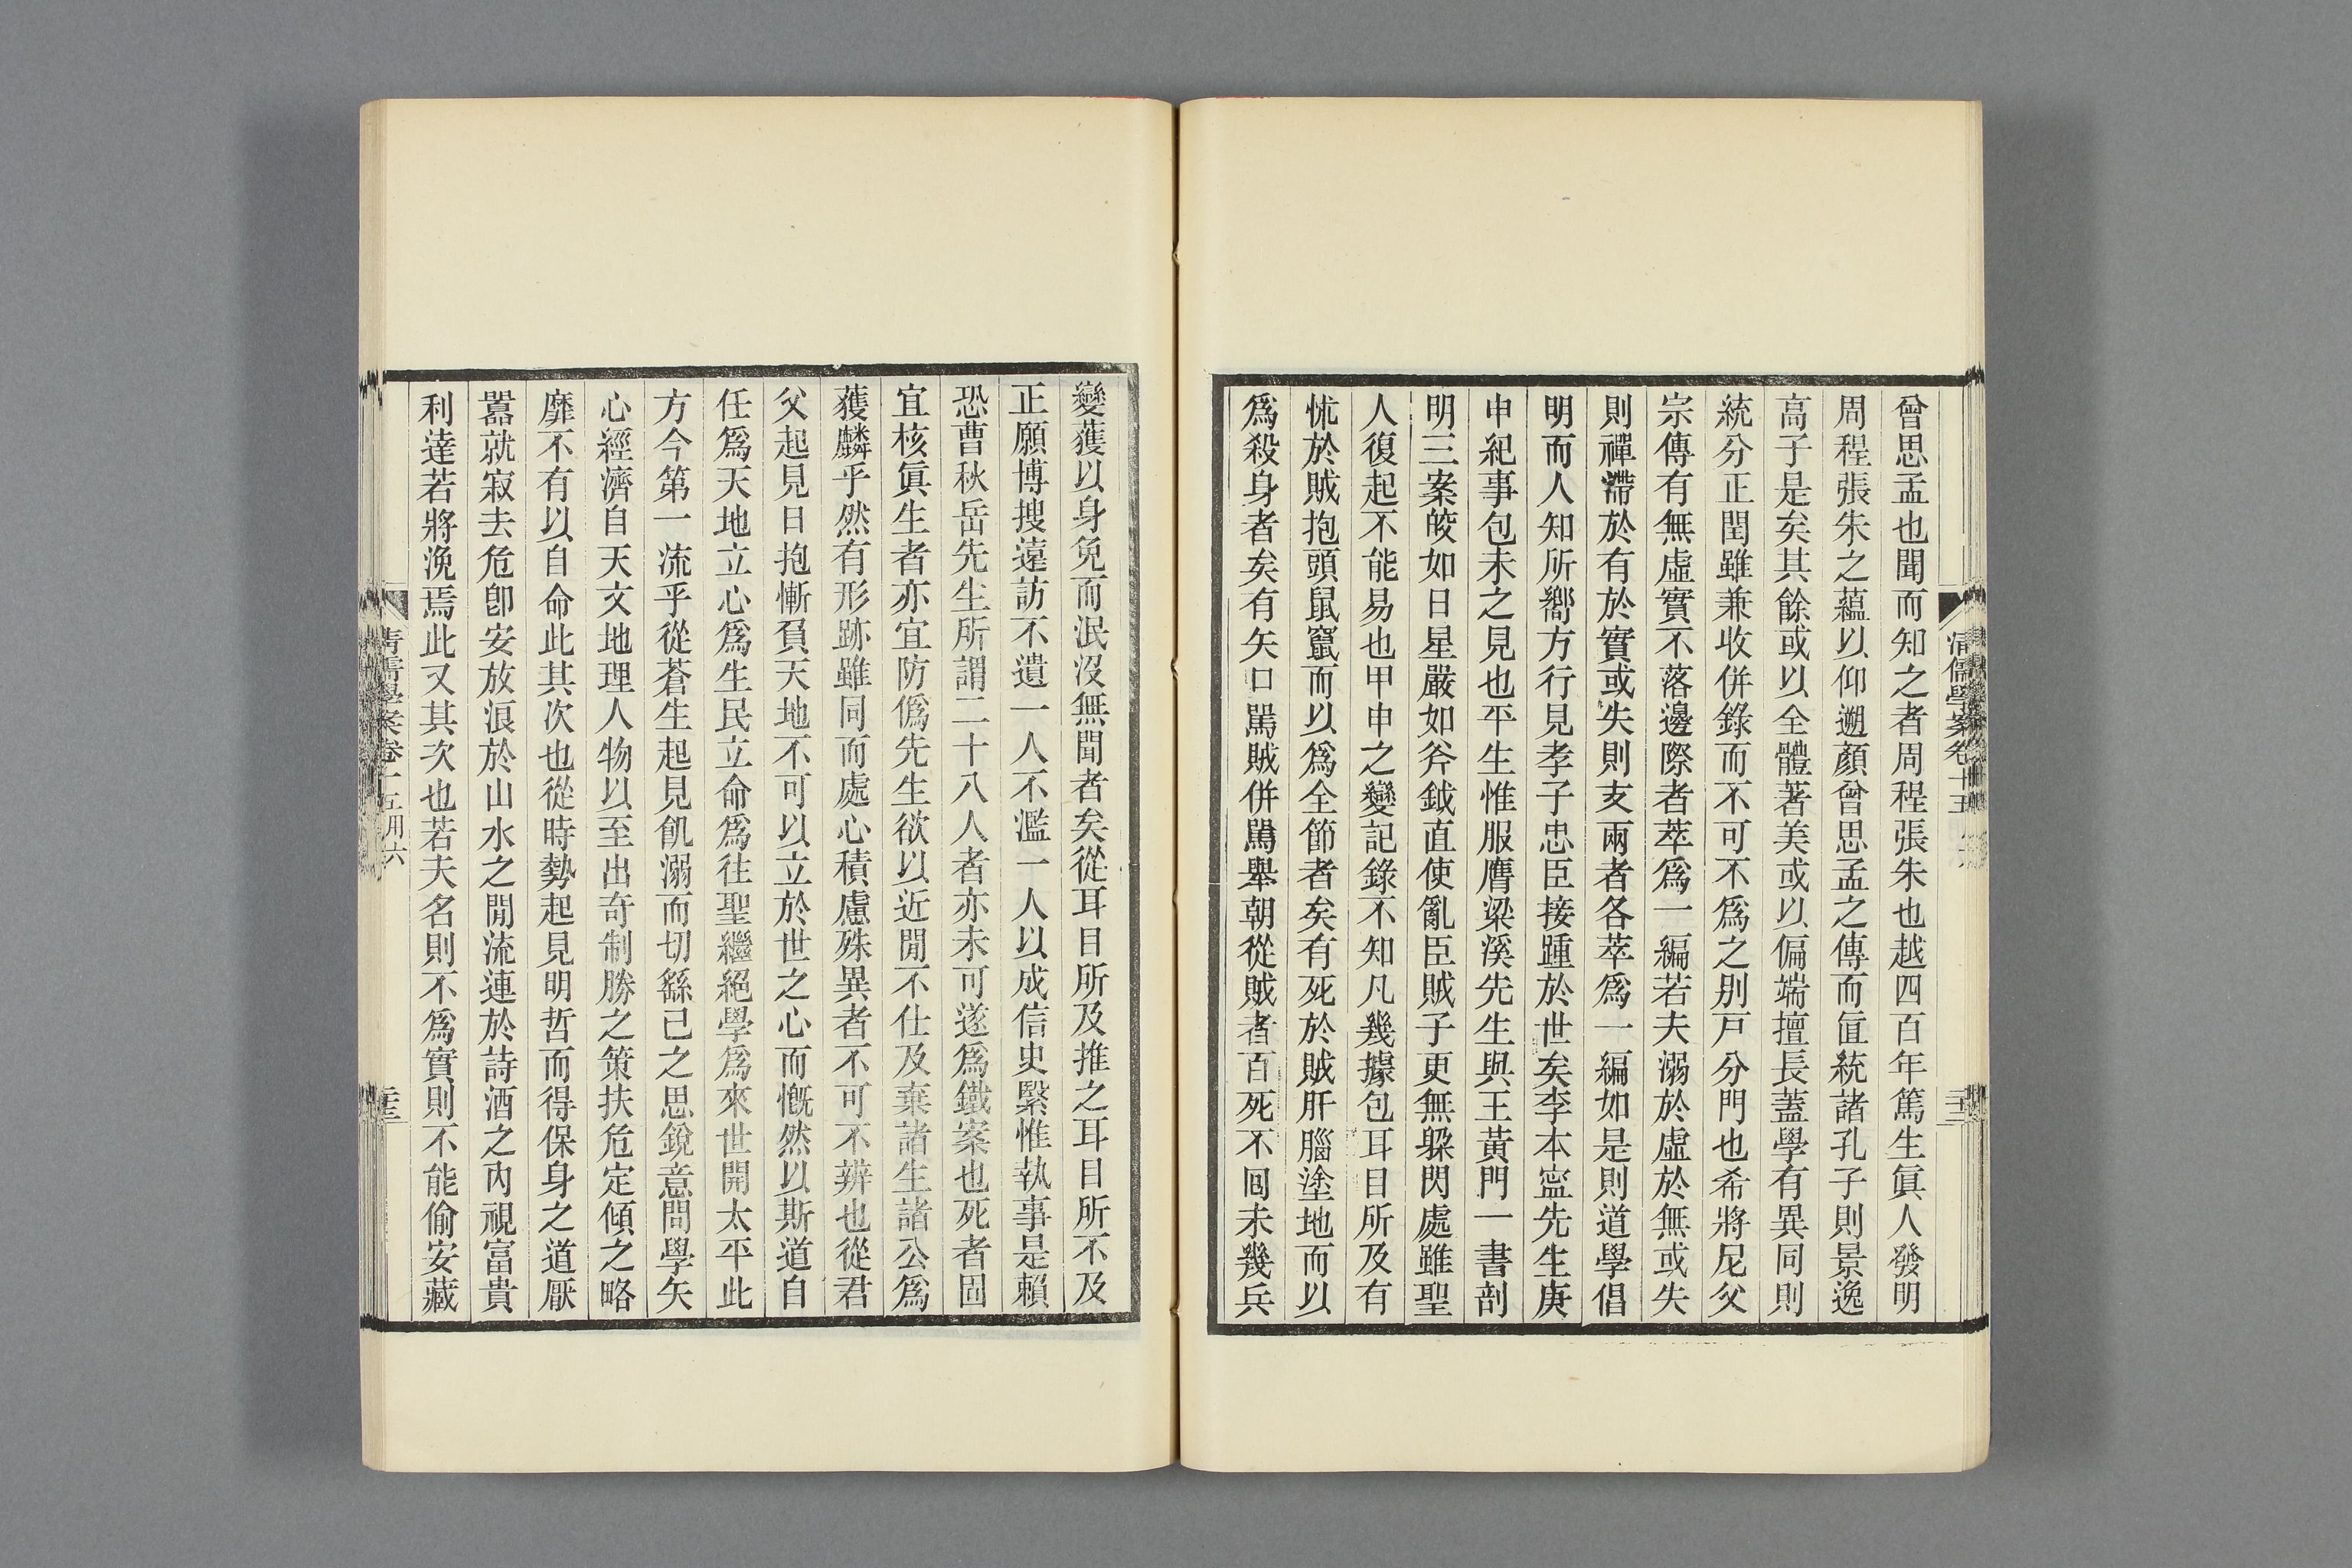 曾思孟也聞而知之者周程張朱也越四百年篤生眞人發明
周程張朱之蘊以仰遡顏曾思孟之傳而直統諸孔子則景逸
高子是矣其餘或以全體著美或以偏端擅長蓋學有異同則
統分正閏雖兼收併錄而不可不爲之別戸分門也希將尼父
宗傳有無虛實不落邊際者萃爲一編若夫溺於虛於無或失
則禪滯於有於實或失則支兩者各萃爲一編如是則道學倡
明而人知所嚮方行見孝子忠臣接踵於世矣李本寧先生庚
申紀事包未之見也平生惟服膺梁溪先生與王黃門一書剖
明三案皎如日星嚴如斧鉞直使亂臣賊子更無躱閃處雖聖
人復起不能易也甲申之變記錄不知凡幾據包耳目所及有
怵於賊抱頭鼠竄而以爲全節者矣有死於賊肝腦塗地而以
爲殺身者矣有矢口罵賊併罵舉朝從賊者百死不囘未幾兵
清儒學案卷十五
變蓷以身免而泯沒無聞者矣從耳目所及推之耳目所不及
正願博搜遠訪不遺一人不濫一人以成信史緊惟執事是賴
恐曹秋岳先生所謂二十八人者亦未可遂爲鐵案也死者固
宜核眞生者亦宜防僞先生欲以近閒不仕及棄諸生諸公爲
獲麟乎然有形跡雖同而處心積慮殊異者不可不辨也從君
父起見日抱慚負天地不可以立於世之心而慨然以斯道自
任爲天地立心爲生民立命爲往聖繼絕學爲來世開太平此
方今第一流乎從蒼生起見飢溺而切繇己之思銳意問學矢
心經濟自天文地理人物以至出奇制勝之策扶危定傾之略
靡不有以自命此其次也從時勢起見明哲而得保身之道厭
囂就寂去危卽安放浪於山水之閒流連於詩酒之內視富貴
利達若將浼焉此又其次也若夫名則不爲實則不能偷安藏
清儒學案卷十五 用六